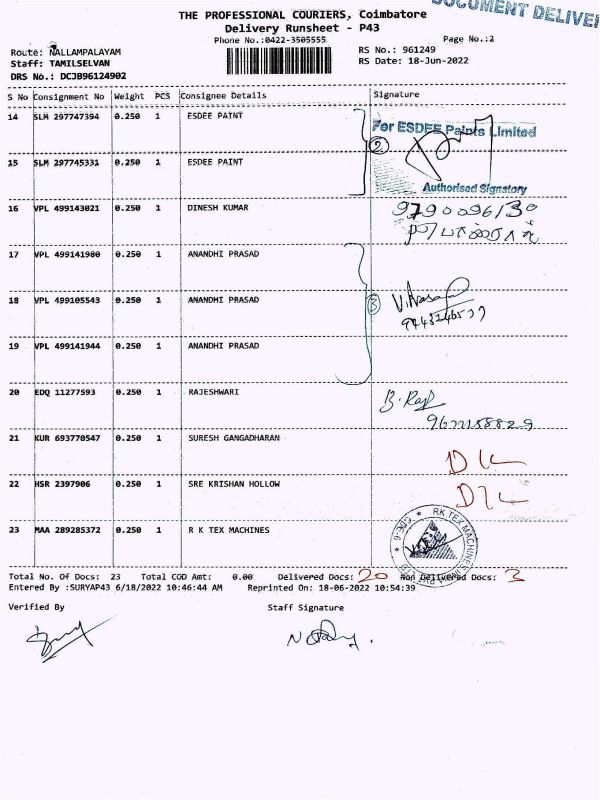 DOCUMENT DELIVER
THE PROFESSIONAL COURIERS, Coimbatore
Delivery Runsheet - P43
Phone No.:0422-3505555
Page No.:2
Route: NALLAMPALAYAM
RS No.: 961249
Staff: TAMILSELVAN
RS Date: 18-Jun-2022
DRS No.: DCJB96124902
S No Consignment No Weight PCS Consignee Details Signature
14 SLM 297747394 0.250 1 ESDEE PAINT
For ESDEE Paints Limited
2
15 SLM 297745331 0.250 1 ESDEE PAINT
Authorised Signatory
16 VPL 499143021 0.250 1 DINESH KUMAR
9790096130
17 VPL 499141980 0.250 1 ANANDHI PRASAD
18 VPL 499105543 0.250 1 ANANDHI PRASAD
3
19 VPL 499141944 0.250 1 ANANDHI PRASAD
20 EDQ 11277593 0.250 1 RAJESHWARI
B. Raj
21 KUR 693770547 0.250 1 SURESH GANGADHARAN
D/L
22 HSR 2397906 0.250 1 SRE KRISHAN HOLLOW
D/L
23 MAA 289285372 0.250 1 R K TEX MACHINES
RK TEX MACHINES
CBE-6
Total No. Of Docs: 23 Total COD Amt: 0.00 Delivered Docs: 20 Non Delivered Docs: 3
Entered By :SURYAP43 6/18/2022 10:46:44 AM Reprinted On: 18-06-2022 10:54:39
Verified By Staff Signature